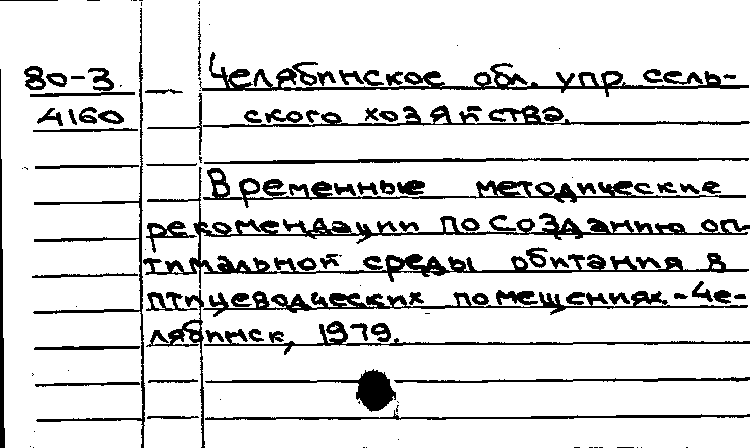 80-3 Челябинское обл. упр. сель-
4160 ского хозяйства.
Временные методические
рекомендации по созданию оп-
тимальной среды обитания в
птицеводческих помещениях.-Че-
лябинск, 1979.